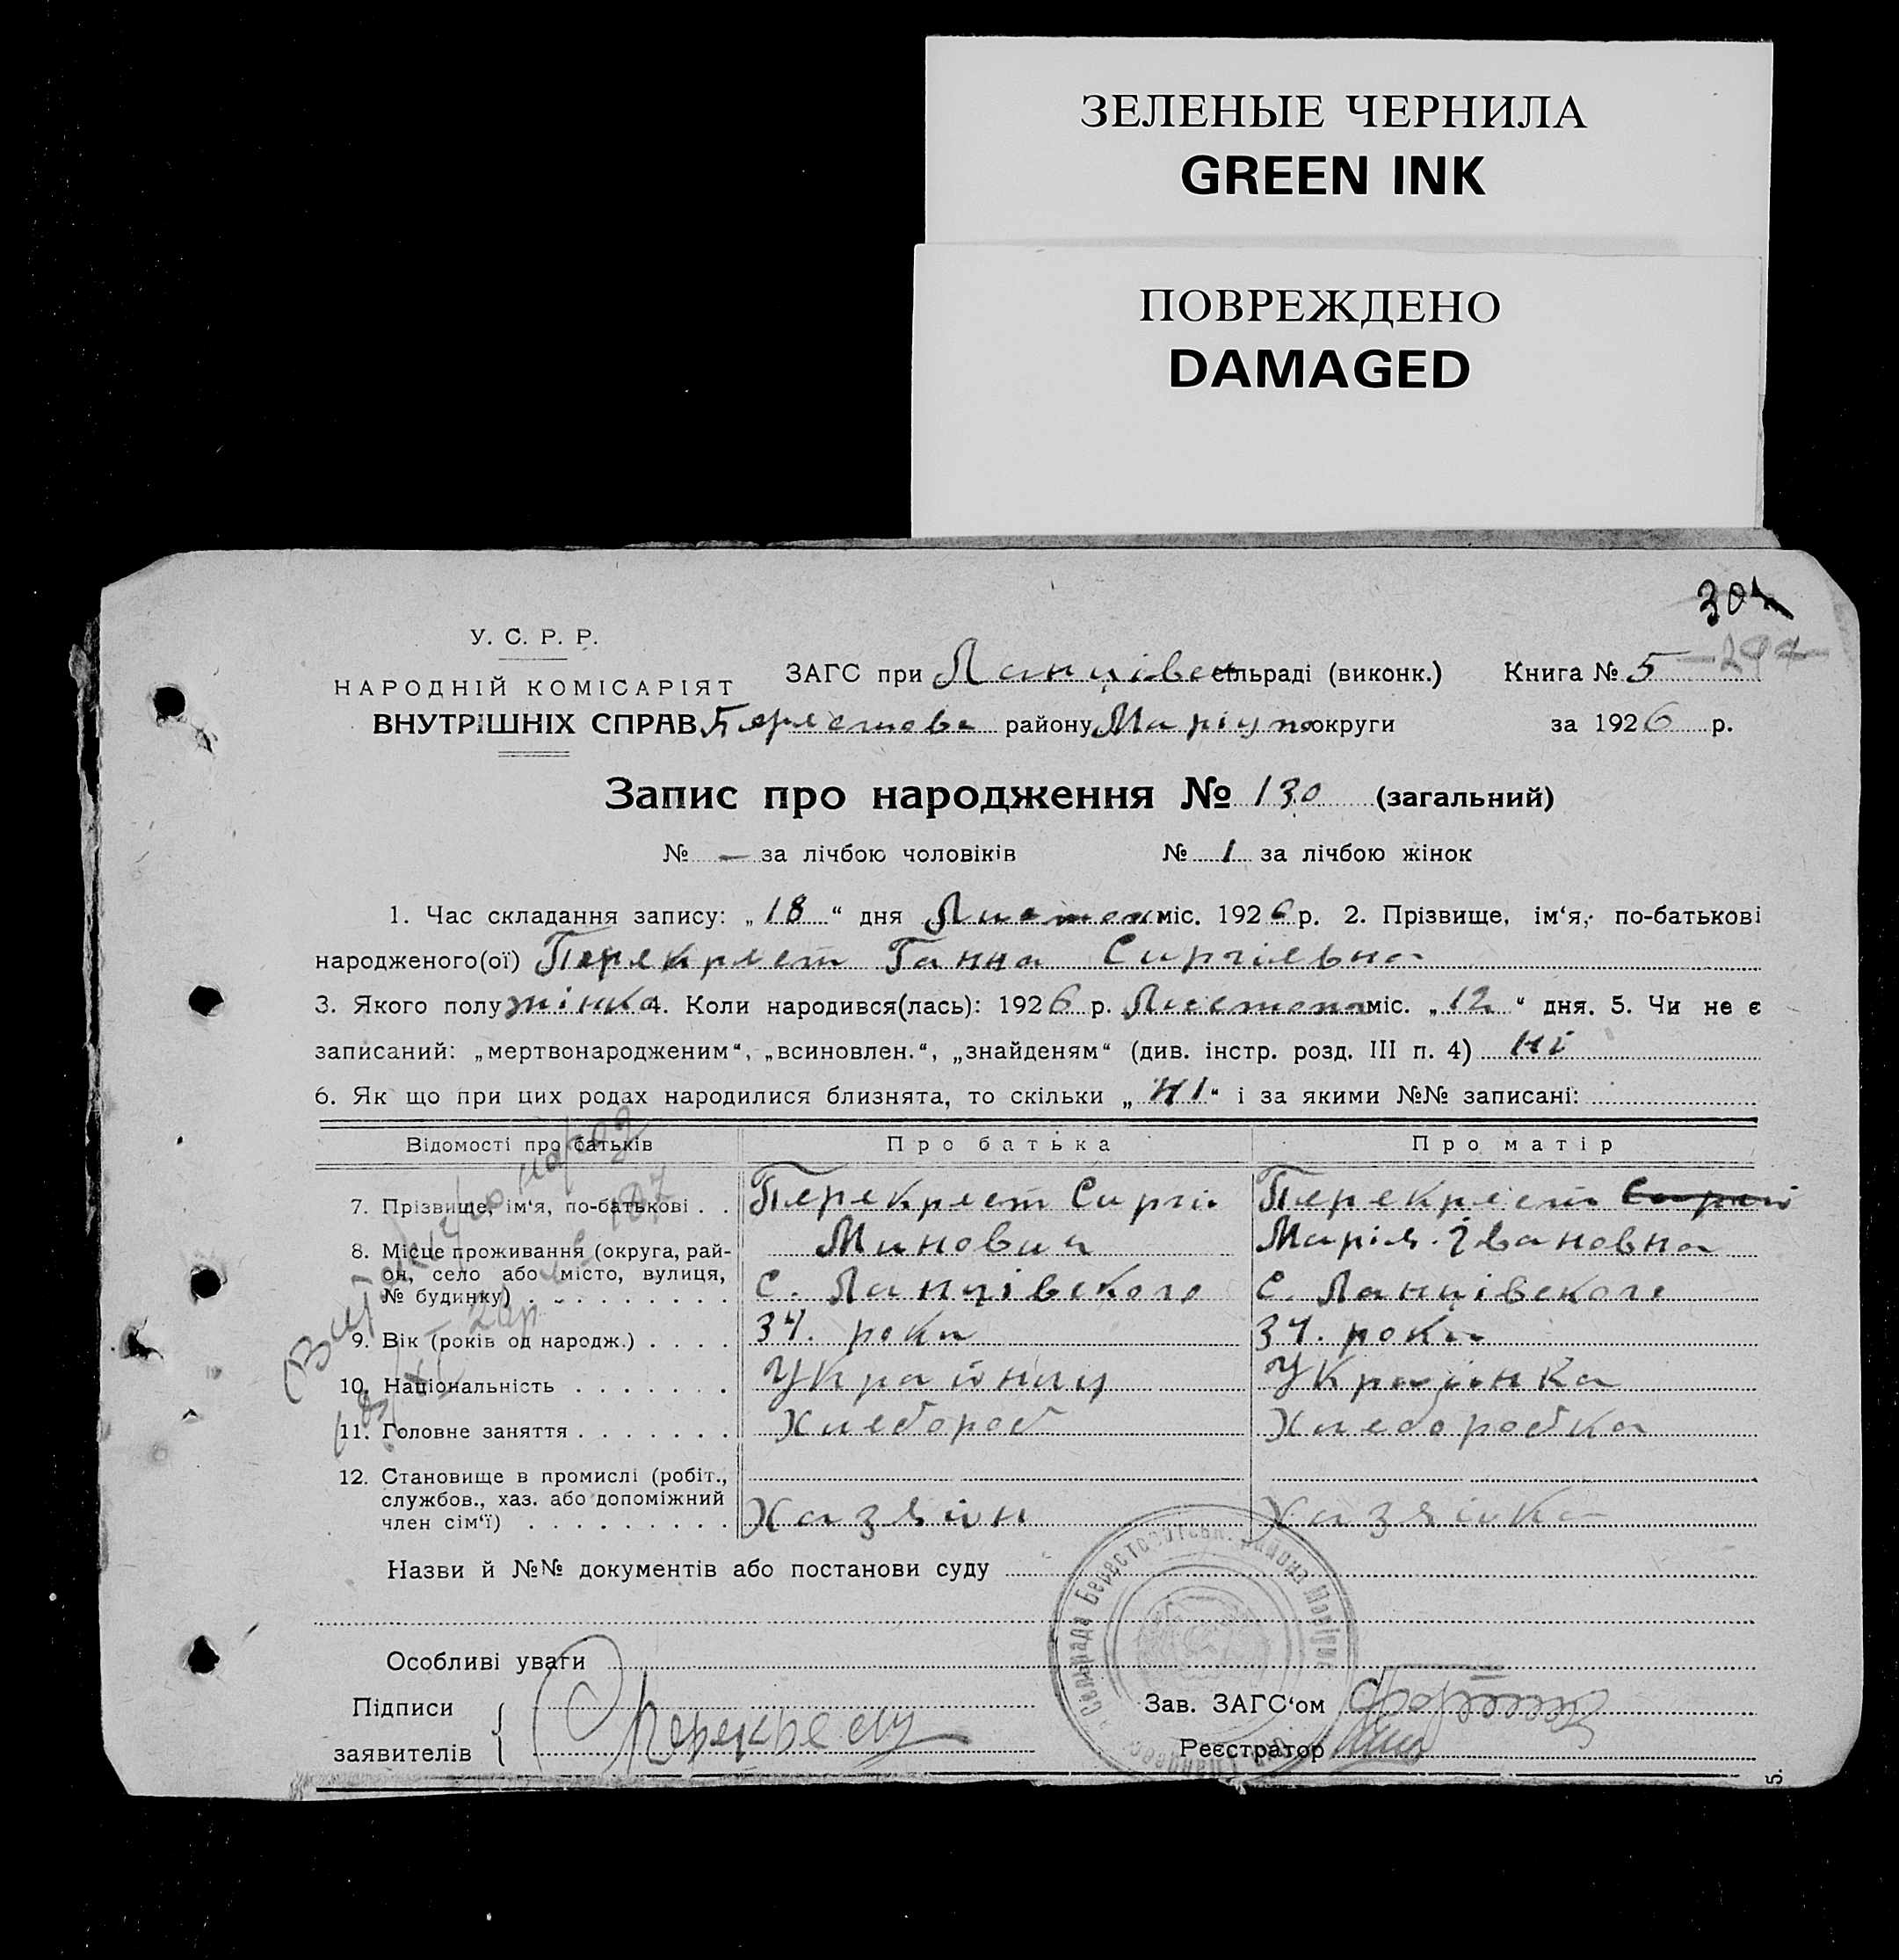 ЗЕЛЕНЫЕ ЧЕРНИЛА
GREEN INK
ПОВРЕЖДЕНО
DAMAGED
304
У. С. Р. Р.
НАРОДНІЙ КОМІСАРІЯТ
ВНУТРІШНІХ СПРАВ
ЗАГС при Ланцівс сільраді (виконк.) Книга № 5
Берестове району Маріупо округи за 1926 р.
Запис про народження № 130 (загальний)
№ — за лічбою чоловіків № 1 за лічбою жінок
1. Час складання запису: „18“ дня Листоп міс. 1926 р. 2. Прізвище, ім‘я, по-батькові
народженого(ої) Перекрест Ганна Сиргіевна
3. Якого полу жінка 4. Коли народився(лась): 1926 р. Листопа міс. „12“ дня. 5. Чи не є
записаний: „мертвонародженим“, „всиновлен.“, „знайденям“ (див. інстр. розд. III п. 4) ні
6. Як що при цих родах народилися близнята, то скільки „НІ“ і за якими №№ записані:
Відомості про батьків Про батька Про матір
7. Прізвище, ім‘я, по-батькові . . Перекрест Сиргій Перекрест Сиргій
Минович Марія Івановна
8. Місце проживання (округа, рай-
он, село або місто, вулиця,
№ будинку) С. Ланцівского С. Ланцівского
9. Вік (років од народж.) . . . . 34. роки 34. роки
10. Національність . . . . . . . Украйниц Украінка
11. Головне заняття . . . . . . . Хлебороб Хлеборобка
12. Становище в промислі (робіт.,
службов., хаз. або допоміжний
член сім‘ї) . . . . . . . . . Хазяін Хазяінка
Назви й №№ документів або постанови суду
Особливі уваги
Підписи
заявителів
Перекрест
Зав. ЗАГС‘ом
Реєстратор
5.